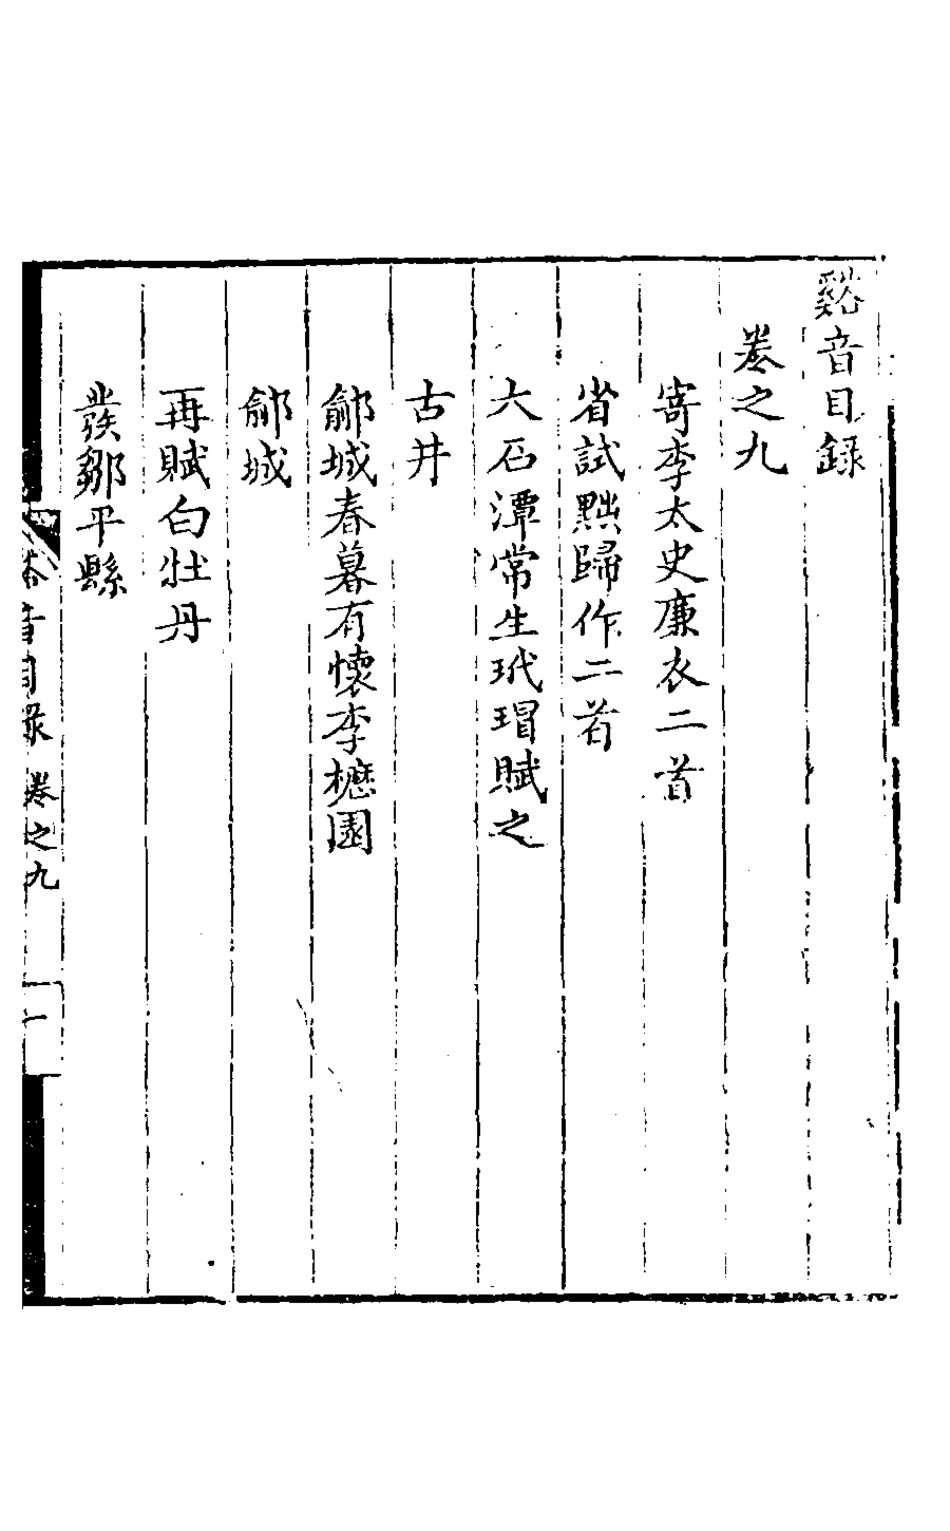 谿音目錄
卷之九
寄李太史廉衣二首
省試黜歸作二首
大石潭常生玳瑁賦之
古井
鄃城春暮有懷李櫪園
鄃城
再賦白牡丹
發鄒平縣
谿音目录 卷之九 一